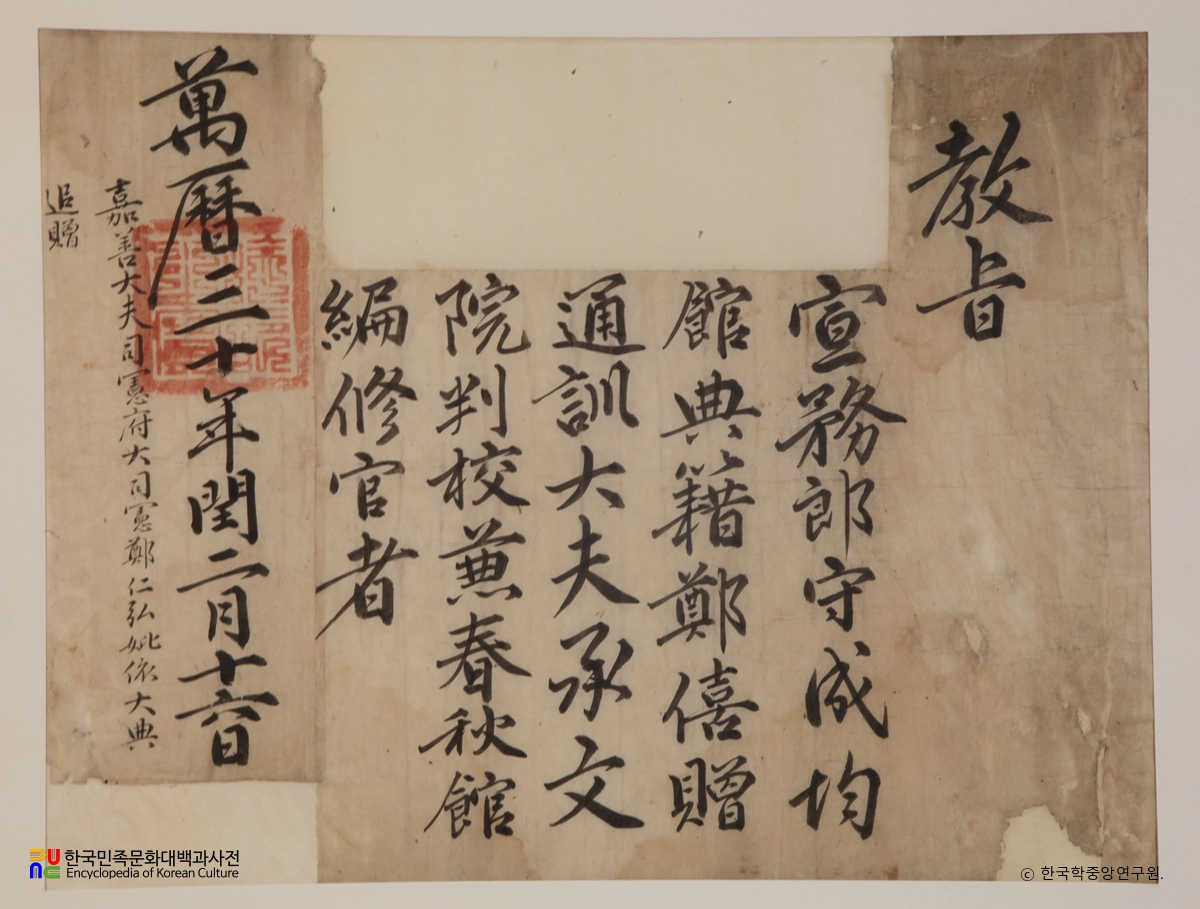 教旨
宣務郎守成均
館典籍鄭僖贈
通訓大夫承文
院判校兼春秋館
編修官者
萬曆三十年閏二月十六日
嘉善大夫司憲府大司憲鄭仁弘妣依大典
追贈
한국민족문화대백과사전
Encyclopedia of Korean Culture
ⓒ 한국학중앙연구원.